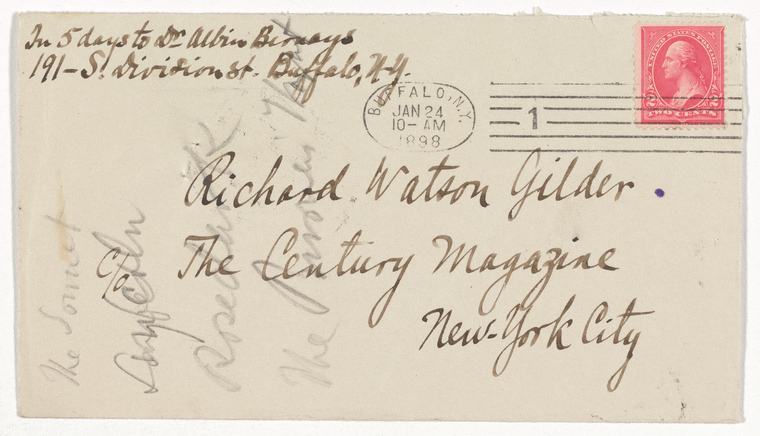 In 5 days to Dr Albin Bernays
191 - S. Division st. Buffalo, N.Y.
BUFFALO, N.Y.
JAN 24
10-AM
1898
1
UNITED STATES POSTAGE
2 2
TWO CENTS
Richard Watson Gilder.
c/o The Century Magazine
New-York City
The Sonnet
Rose Dark
The